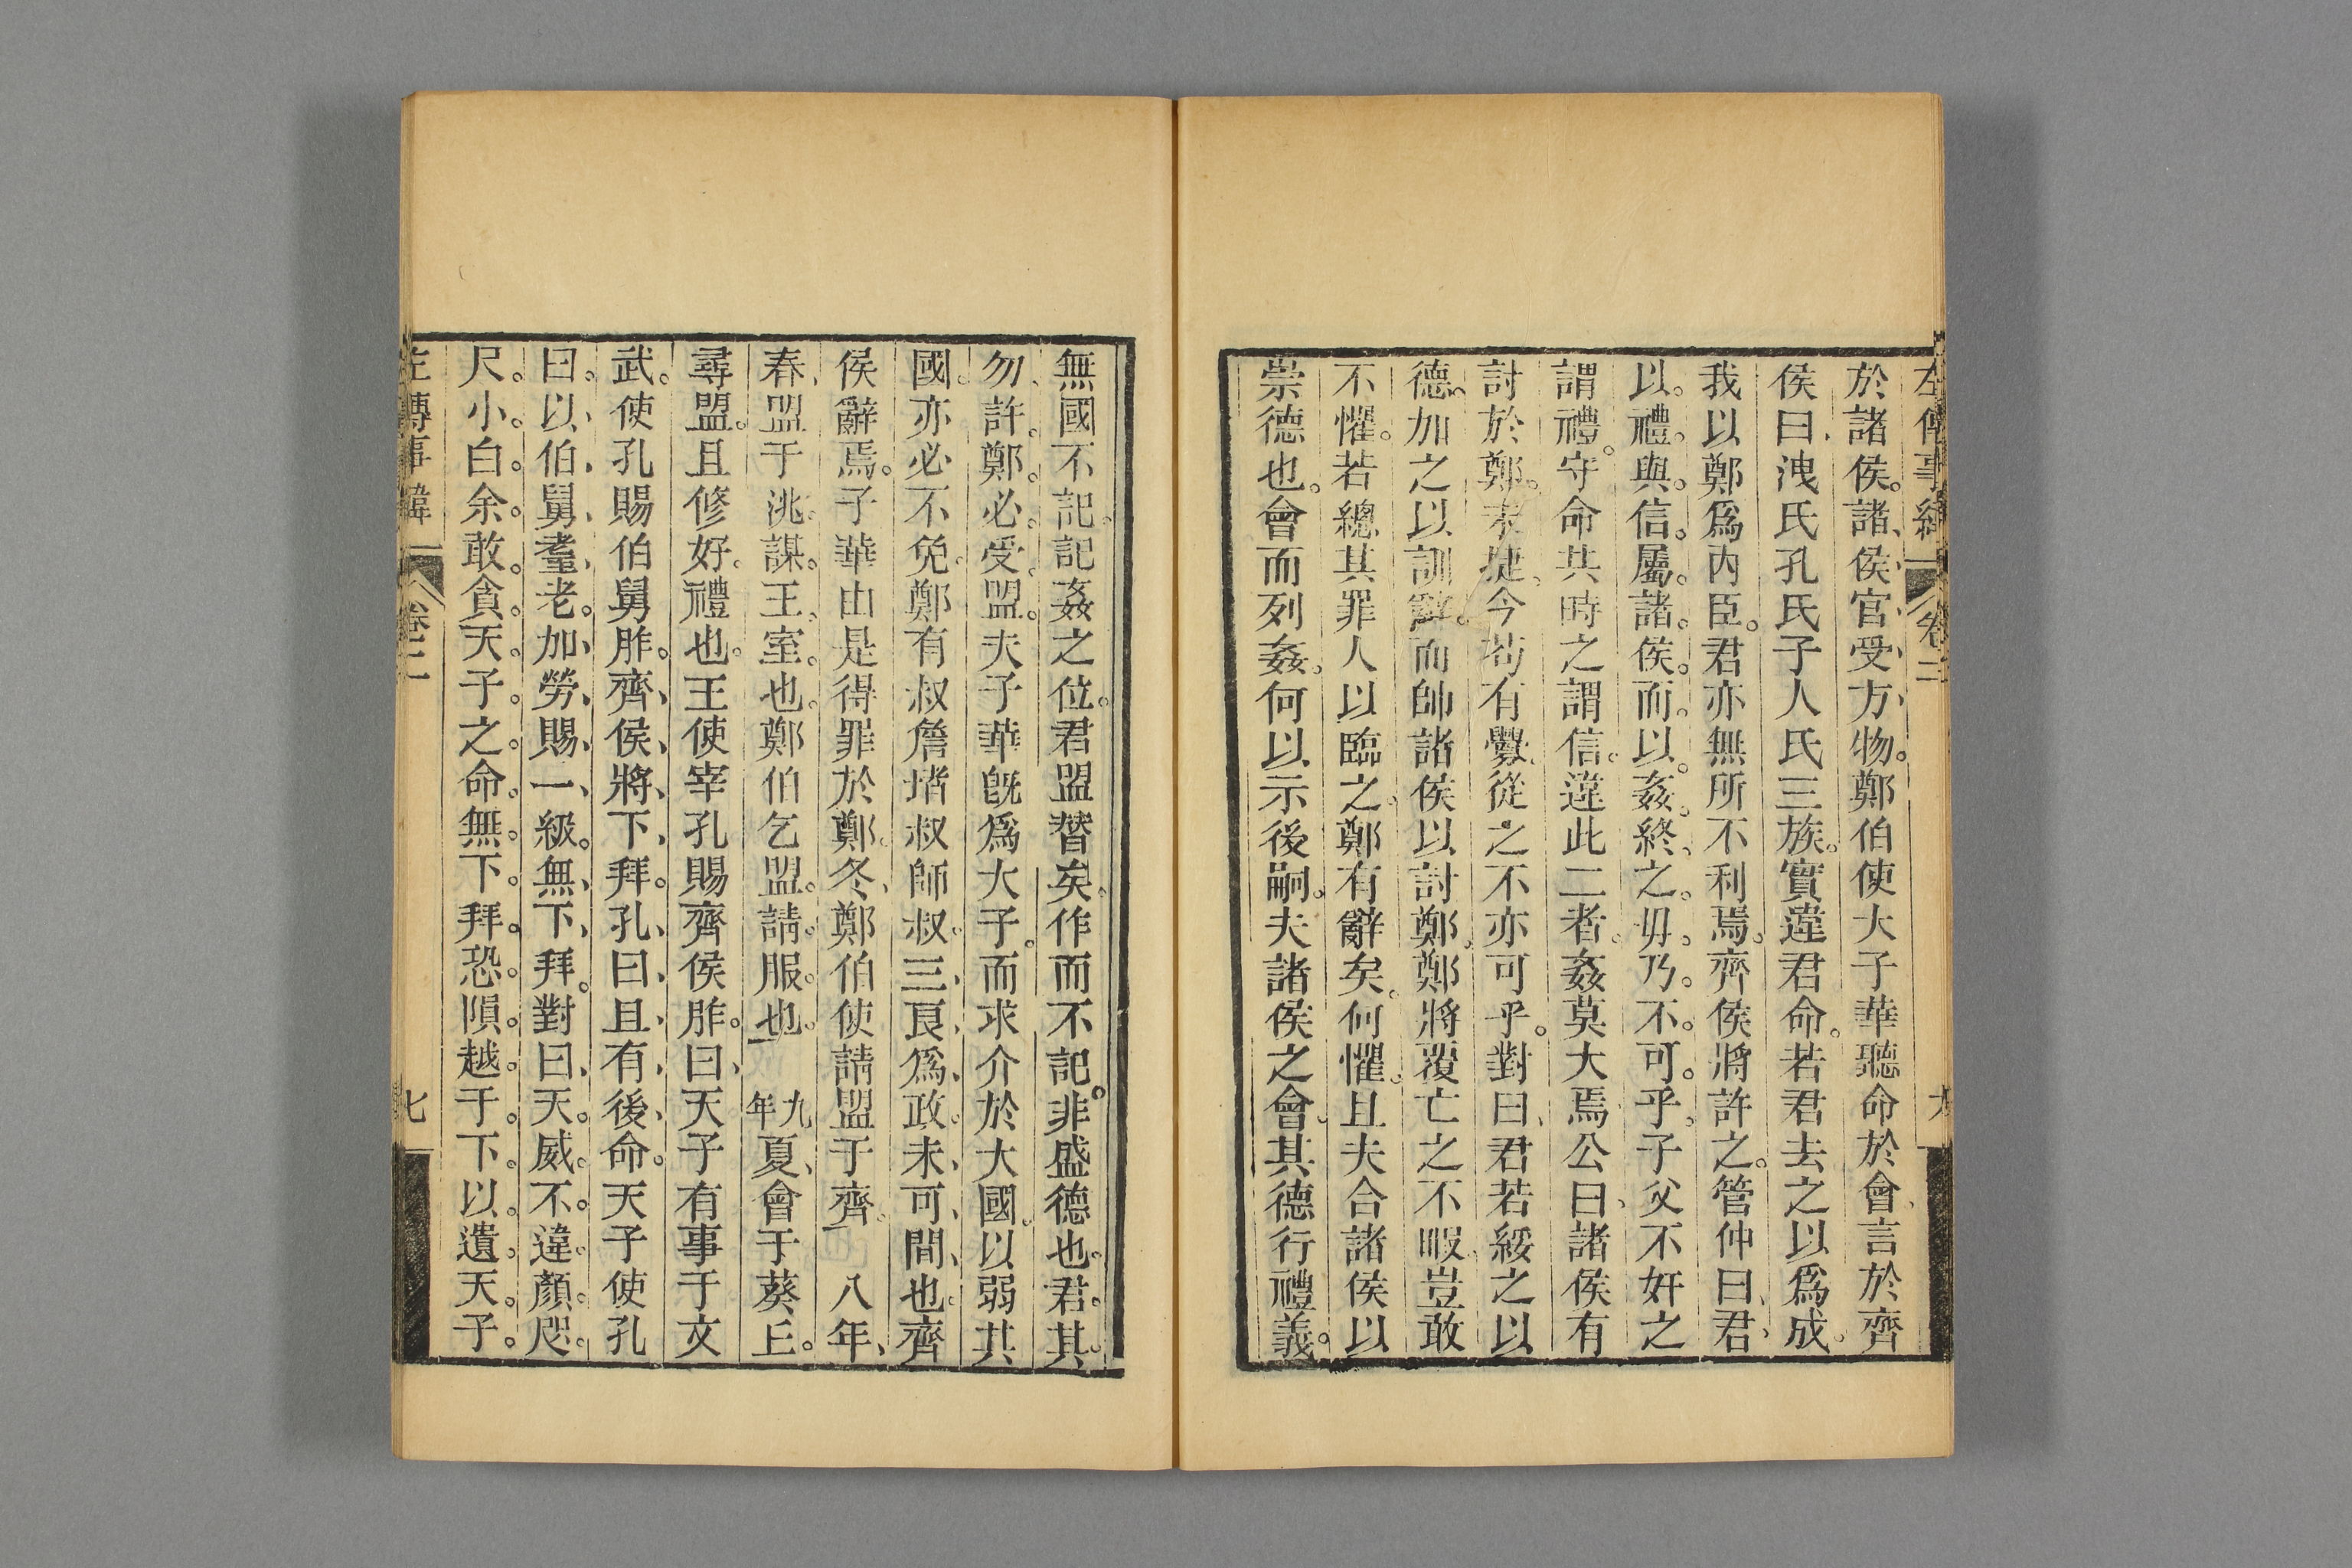 左傳事緯 卷二
於諸侯。諸侯官受方物。鄭伯使大子華聽命於會、言於齊
侯曰、洩氏孔氏子人氏三族。實違君命。若君去之以爲成。
我以鄭爲內臣。君亦無所不利焉。齊侯將許之。管仲曰、君、
以。禮。與。信。屬。諸。侯。而。以。姦。終。之。毋。乃。不。可。乎。子父不奸之
謂禮。守命共時之謂信。違此二者。姦莫大焉、公曰、諸侯有
討於鄭。未捷。今苟有釁、從之不亦可乎。對曰、君若綏之以
德。加之以訓辭。而帥諸侯以討鄭。鄭將覆亡之不暇。豈敢
不懼。若總其罪人以臨之。鄭有辭矣。何懼。且夫合諸侯以
崇德也。會而列姦。何以示後嗣。夫諸侯之會、其德行禮義。
無國不記。記姦之位。君盟替矣。作而不記。非盛德也。君。其。
勿、許。鄭。必。受。盟。夫子華旣爲大子。而求介於大國。以弱其
國。亦必不免。鄭有叔詹堵叔師叔。三、良、爲、政。未、可、間、也。齊
侯辭焉。子華由是得罪於鄭。冬、鄭伯使請盟于齊。 八年、
春、盟于洮。謀。王。室。也。鄭伯乞盟。請。服。也。 九年夏、會于葵丘。
尋盟。且修好。禮也。王使宰孔賜齊侯胙。曰、天子有事于文
武。使孔賜伯舅胙。齊、侯、將、下、拜。孔、曰、且、有、後、命。天子使孔
曰。以、伯、舅、耋、老。加、勞、賜、一、級。無、下、拜。對曰、天。威。不。違。顏。咫。
尺。小。白。余。敢。貪。天。子。之。命。無。下。拜。恐。隕。越。于。下。以。遺。天。子。
左傳事緯 卷二 七